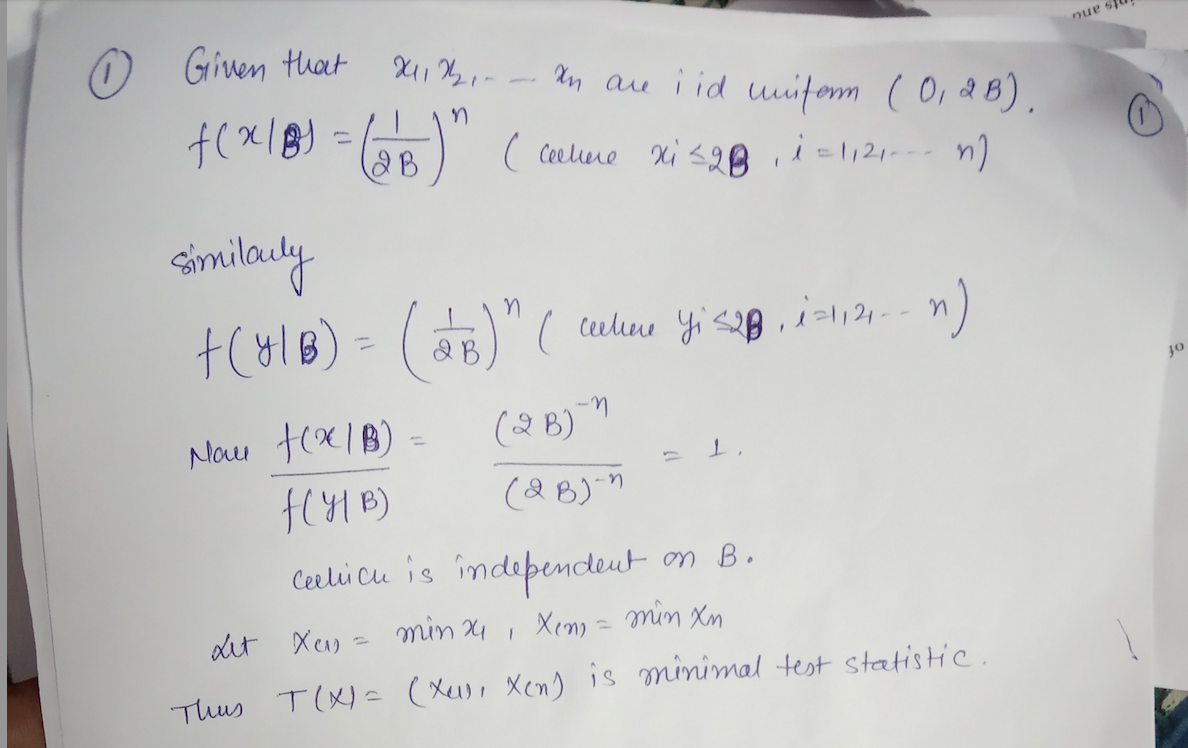 ① Given that x1, x2, - - - xn are i id uniform ( 0, 2B).
①
f(x|B) = (1/2B)^n ( where xi ≤ 2B , i = 1, 2, --- n)
similarly
f(y|B) = (1/2B)^n ( where yi ≤ 2B , i = 1, 2, -- n)
Now f(x|B) / f(y|B) = (2B)^-n / (2B)^-n = 1.
which is independent on B.
Let X(1) = min x1 , X(n) = min Xn
Thus T(X) = (X(1), X(n)) is minimal test statistic.